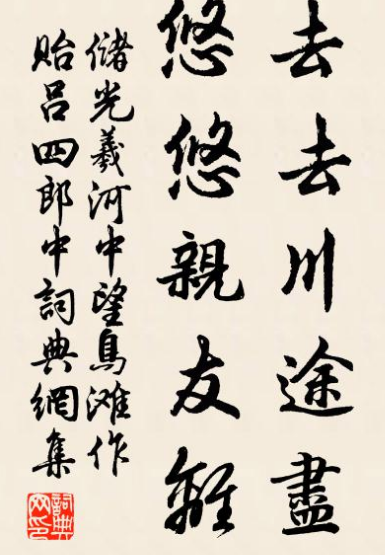 去去川途盡
悠悠親友離
儲光羲河中望鳥灘作
貽呂四郎中詞典網集
詞典网印